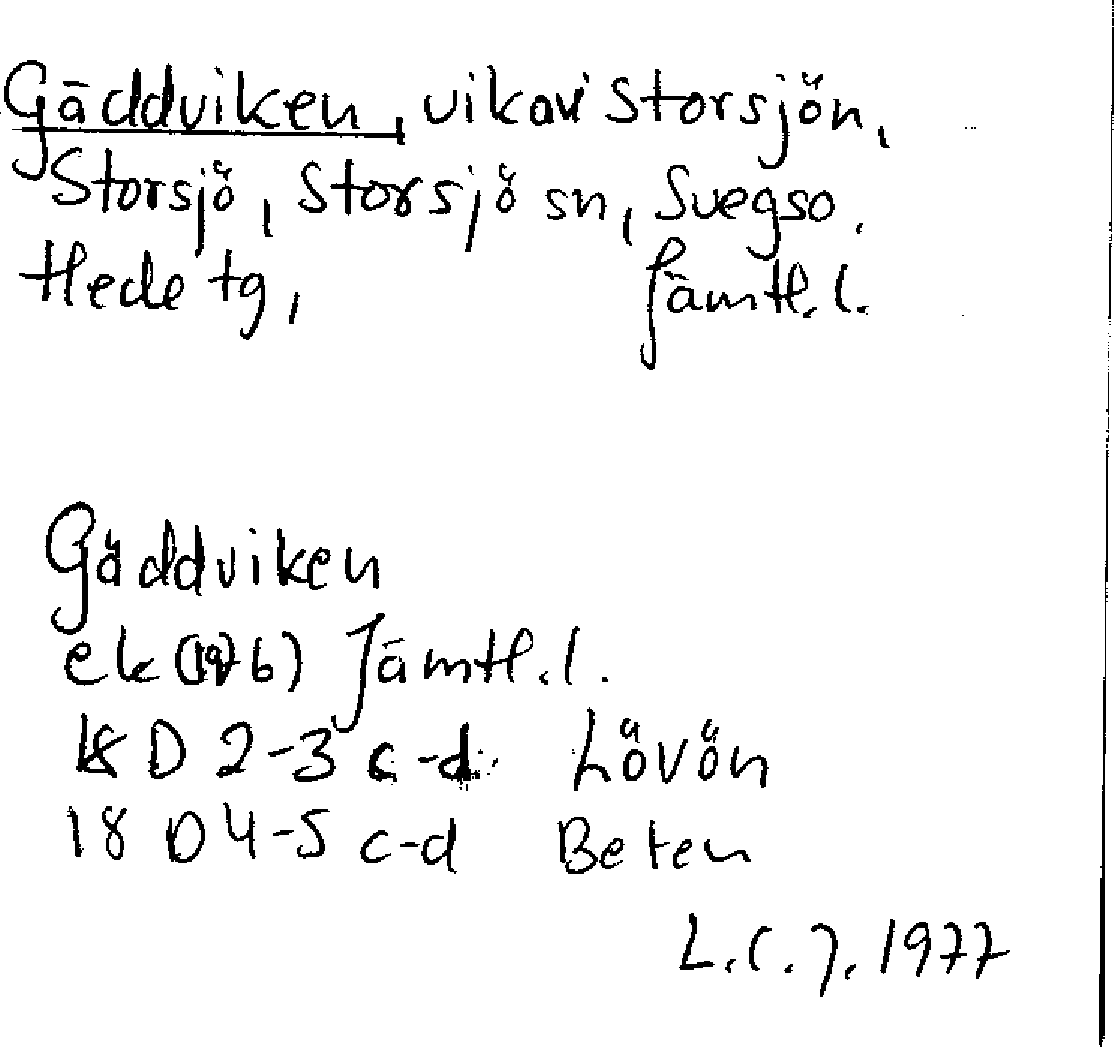 Gäddviken, vik av i Storsjön,
Storsjö, Storsjö sn, Svegs o.
Hede tg, Jämtl. l.
Gäddviken
ek (1976) Jämtl. l.
18 D 2-3 c-d Lövön
18 D 4-5 c-d Beten
L.C.J. 1977